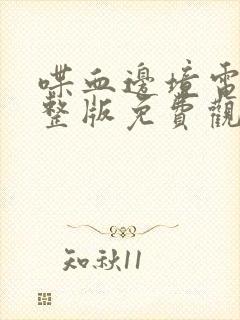 喋血邊境電
整版免費觀
知秋11